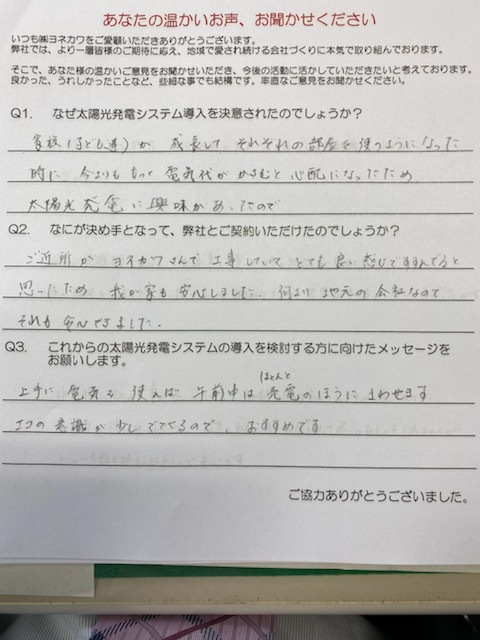 あなたの温かいお声、お聞かせください
いつも㈱ヨネカワをご愛顧いただきありがとうございます。
弊社では、より一層皆様のご期待に応え、地域で愛され続ける会社づくりに本気で取り組んでおります。
そこで、あなた様の温かいご意見をお聞かせいただき、今後の活動に活かしていきたいと考えております。
良かった、うれしかったことなど、些細な事でも結構です。率直なご意見をお聞かせください。
Q1. なぜ太陽光発電システム導入を決意されたのでしょうか？
家族（子ども達）が 成長して それぞれの部屋を使うようになった
時に 今よりももっと 電気代がかさむと心配になったため
太陽光発電に興味があったので
Q2. なにが決め手となって、弊社とご契約いただけたのでしょうか？
ご近所が ヨネカワさんで 工事していて とても良い感じですすんでると
思ったため 我が家も安心しました。何より地元の会社なので
それも安心できました.
Q3. これからの太陽光発電システムの導入を検討する方に向けたメッセージを
お願いします。
ほとんど
上手に 電気を 使えば 午前中は 売電のほうに まわせます
エコの意識が少しでてくるので、おすすめです
ご協力ありがとうございました。